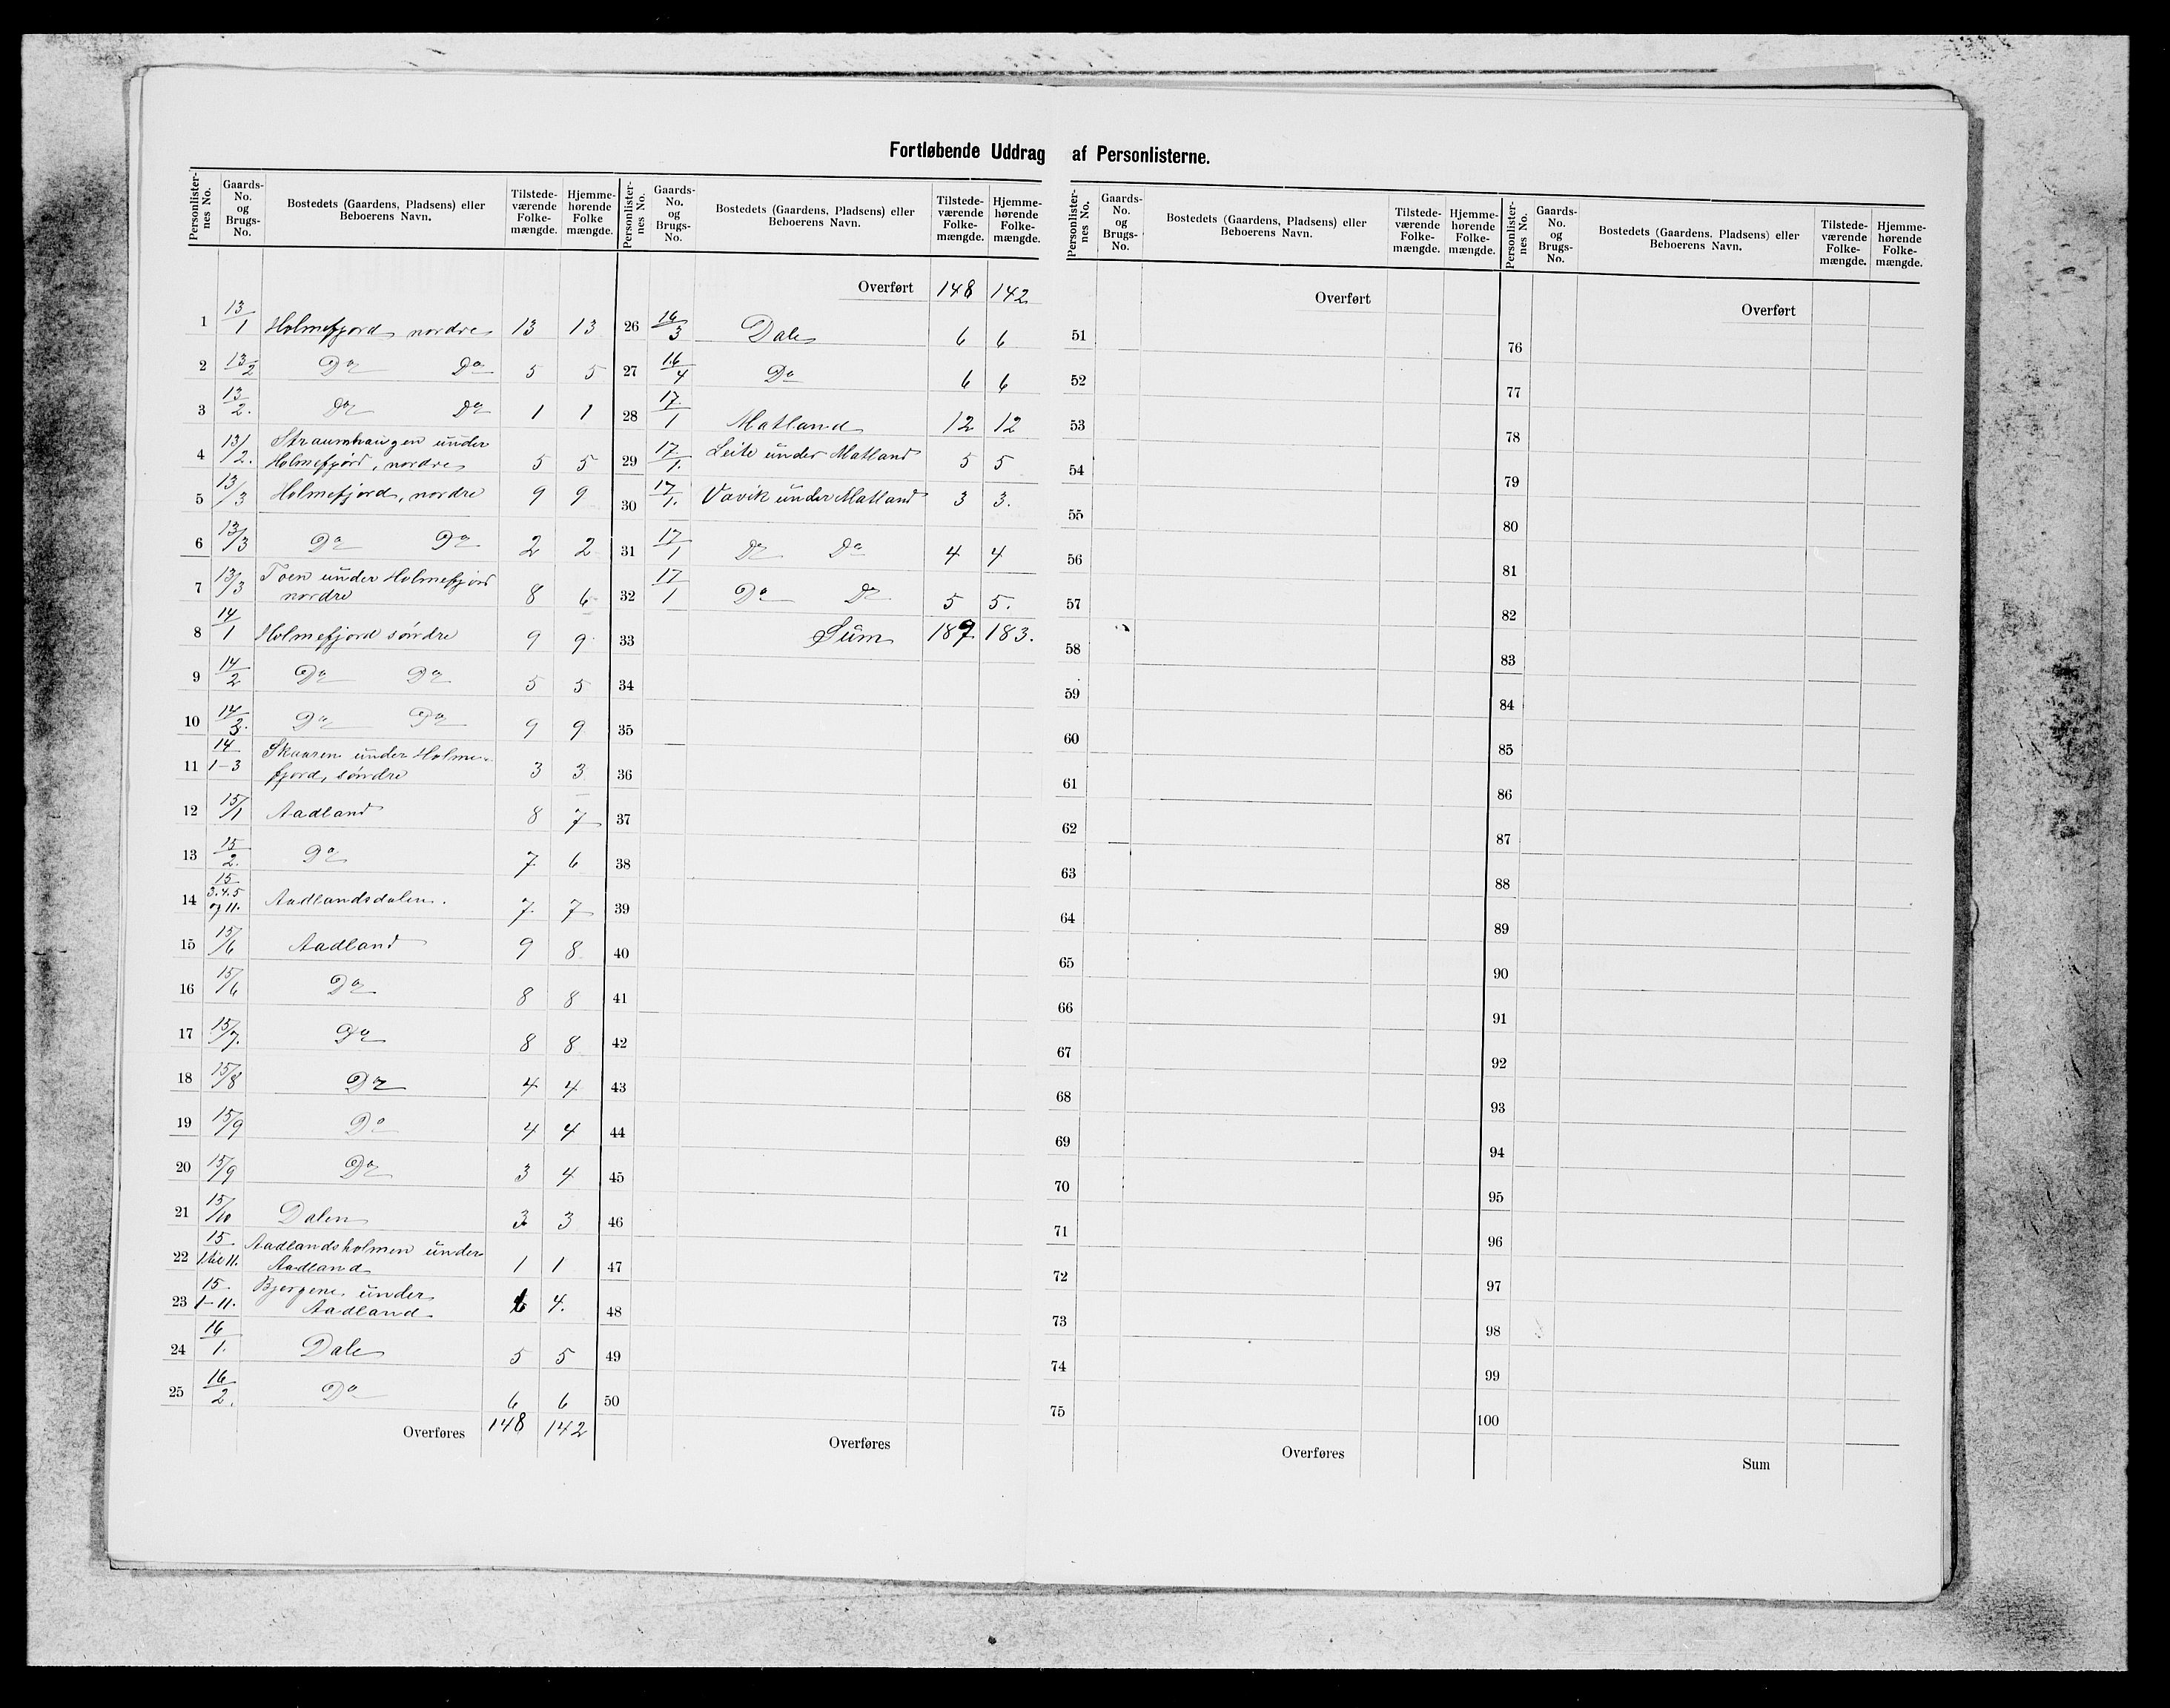 Fortløbende Uddrag af Personlisterne.
Personlisternes No. | Gaards-No. og Brugs-No. | Bostedets (Gaardens, Pladsens) eller Beboerens Navn. | Tilstedeværende Folkemængde. | Hjemmehørende Folke mængde.
1 | 13/1 | Holmefjord, nordre | 13 | 13
2 | 13/2 | Do Do | 5 | 5
3 | 13/2. | Do Do | 1 | 1
4 | 13/2. | Straumhaugen under
Holmefjord, nordre | 5 | 5
5 | 13/3 | Holmefjord, nordre | 9 | 9
6 | 13/3 | Do Do | 2 | 2
7 | 13/3 | Toen under Holmefjord
nordre | 8 | 6
8 | 14/1 | Holmefjord søndre | 9 | 9
9 | 14/2 | Do Do | 5 | 5
10 | 14/3. | Do Do | 9 | 9
11 | 14/1-3 | Skaaren under Holme-
fjord, søndre | 3 | 3
12 | 15/1 | Aadland | 8 | 7
13 | 15/2. | Do | 7 | 6
14 | 15/3.4.5 og 11. | Aadlandsdalen. | 7. | 7
15 | 15/6 | Aadland | 9 | 8
16 | 15/6 | Do | 8 | 8
17 | 15/7. | Do | 8 | 8
18 | 15/8 | Do | 4 | 4
19 | 15/9 | Do | 4 | 4
20 | 15/9 | Do | 3 | 4
21 | 15/10 | Dalen | 3 | 3
22 | 15/1 til 11. | Aadlandsholmen under
Aadland | 1 | 1
23 | 15/1-11. | Bjergene under
Aadland | 6 | 4.
24 | 16/1. | Dale | 5 | 5
25 | 16/2. | Do | 6 | 6
Overføres | 148 | 142
Personlisternes No. | Gaards-No. og Brugs-No. | Bostedets (Gaardens, Pladsens) eller Beboerens Navn. | Tilstedeværende Folkemængde. | Hjemmehørende Folkemængde.
Overført | 148 | 142
26 | 16/3 | Dale | 6 | 6
27 | 16/4 | Do | 6 | 6
28 | 17/1 | Matland | 12 | 12
29 | 17/1. | Leite under Matland | 5 | 5
30 | 17/1. | Vavik under Matland | 3 | 3.
31 | 17/1 | Do Do | 4 | 4
32 | 17/1 | Do Do | 5 | 5.
33 | Sum | 189 | 183.
34
35
36
37
38
39
40
41
42
43
44
45
46
47
48
49
50
Overføres
Personlisternes No. | Gaards-No. og Brugs-No. | Bostedets (Gaardens, Pladsens) eller Beboerens Navn. | Tilstedeværende Folkemængde. | Hjemmehørende Folkemængde.
Overført
51
52
53
54
55
56
57
58
59
60
61
62
63
64
65
66
67
68
69
70
71
72
73
74
75
Overføres
Personlisternes No. | Gaards-No. og Brugs-No. | Bostedets (Gaardens, Pladsens) eller Beboerens Navn. | Tilstedeværende Folkemængde. | Hjemmehørende Folkemængde.
Overført
76
77
78
79
80
81
82
83
84
85
86
87
88
89
90
91
92
93
94
95
96
97
98
99
100
Sum